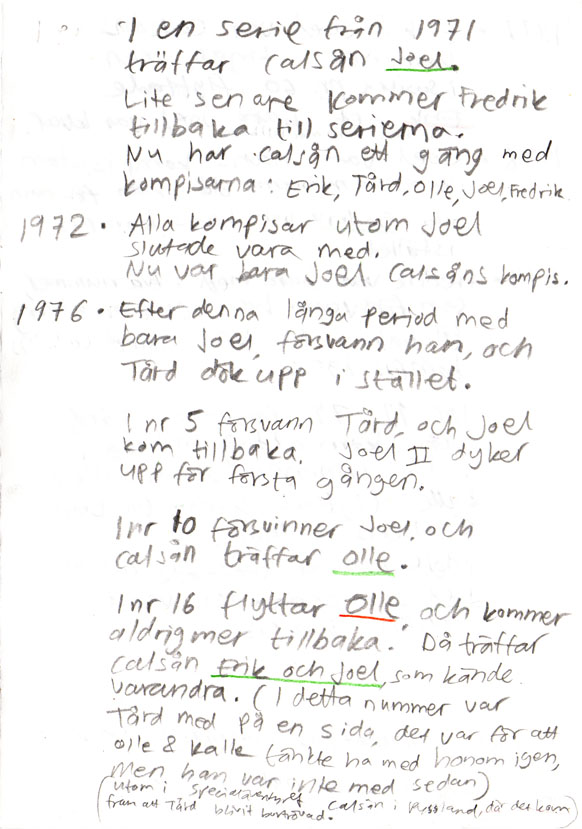 I en serie från 1971
träffar Calsån Joel.
Lite senare kommer Fredrik
tillbaka till serierna.
Nu har Calsån ett gäng med
kompisarna: Erik, Tård, Olle, Joel, Fredrik.
1972. Alla kompisar utom Joel
slutade vara med.
Nu var bara Joel Calsåns kompis.
1976. Efter denna långa period med
bara Joel, försvann han, och
Tård dök upp i stället.
I nr 5 försvann Tård, och Joel
kom tillbaka. Joel II dyker
upp för första gången.
I nr 10 försvinner Joel, och
Calsån träffar Olle.
I nr 16 flyttar Olle, och kommer
aldrig mer tillbaka. Då träffar
Calsån Erik och Joel, som kände
varandra. (I detta nummer var
Tård med på en sida, det var för att
Olle & Kalle tänkte ha med honom igen,
Men han var inte med sedan)
(utom i specialäventyret Calsån i Ryssland, där det kom
fram att Tård blivit bortrövad.)